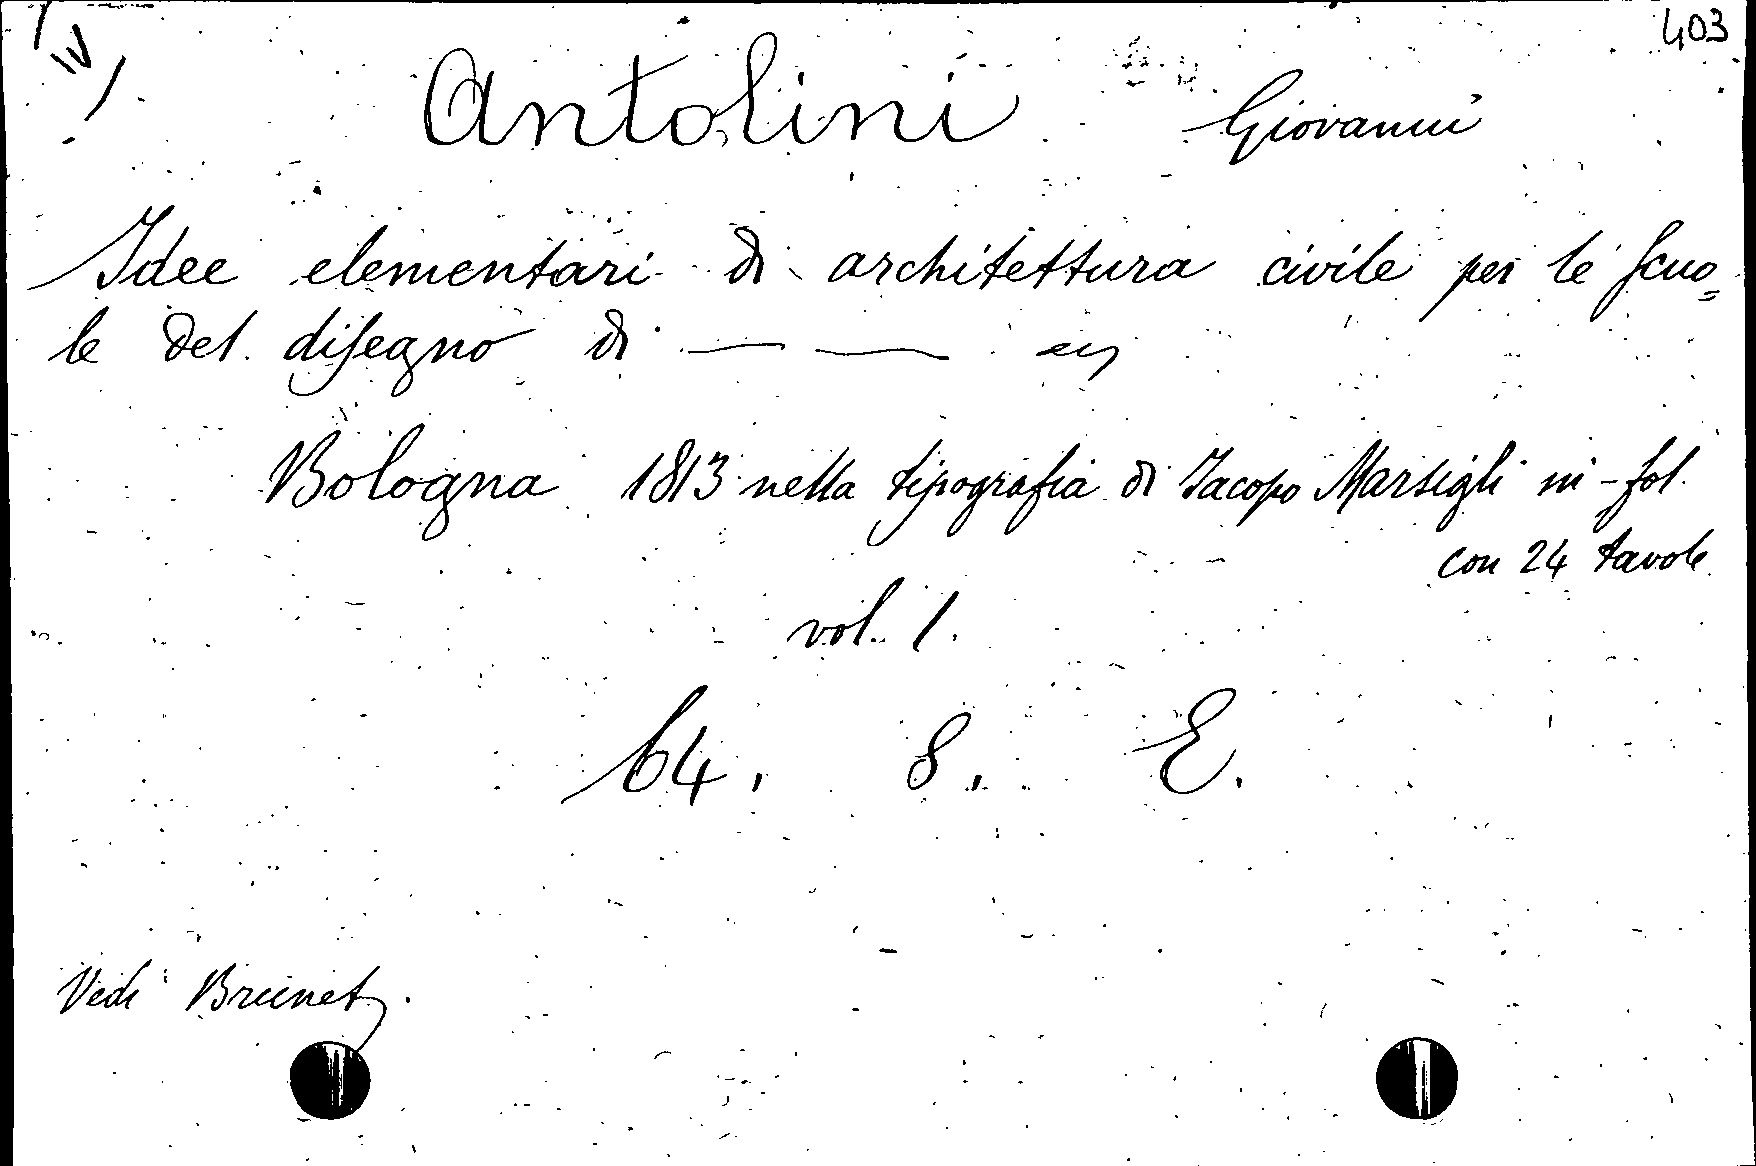 403
IV
Antolini Giovanni
Idee elementari di architettura civile per le scuo=
le del disegno di — —
Bologna 1813 nella tipografia di Jacopo Marsigli in-fol.
con 24 tavole
vol. 1.
64. 8. E.
Vedi Brunet.